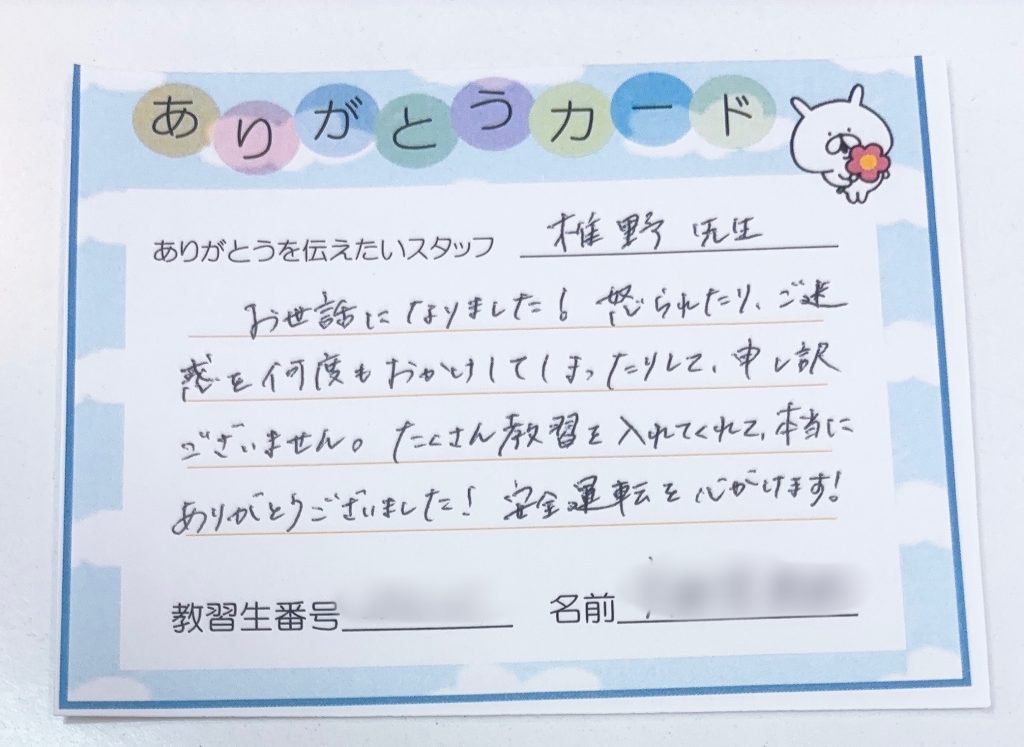 ありがとうカード
ありがとうを伝えたいスタッフ 椎野 先生
お世話になりました! 怒られたり、ご迷
惑を何度もおかけしてしまったりして、申し訳
ございません。たくさん教習を入れてくれて、本当に
ありがとうございました! 安全運転を心がけます!
教習生番号
名前